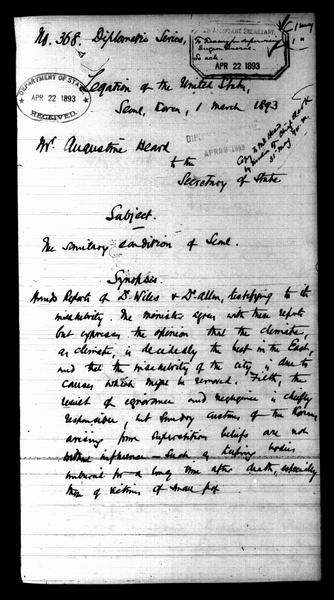 No. 368. Diplomatic Series,
2D ASSISTANT SECRETARY,
APR 22 1893
1 May
DEPARTMENT OF STATE
APR 22 1893
RECEIVED.
Legation of the United States,
Seoul, Korea, 1 March 1893
Mr. Augustine Heard
to the
Secretary of State
Subject.
The Sanitary condition of Seoul.
Synopsis.
Reports of Dr. Wiles & Dr. Allen, testifying to its
insalubrity. The minister agrees with these reports
but expresses the opinion that the climate,
as climate, is decidedly the best in the East,
and that the insalubrity of the city is due to
causes which might be removed. Filth, the
result of ignorance and negligence is chiefly
responsible, but sundry customs of the Koreans
arising from superstitious beliefs are not
without influence — such as keeping bodies
unburied for a long time after death, especially
those of victims of small pox